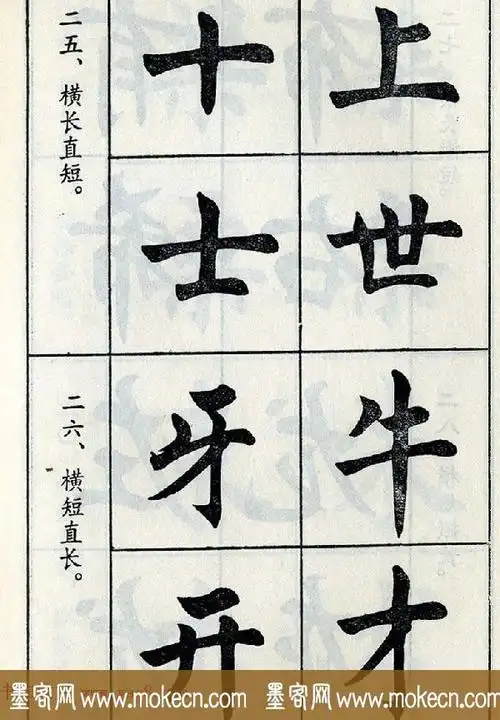 二五、横长直短。
上
十
世
士
二六、横短直长。
牛
牙
才
开
墨客网 www.mokecn.com 墨客网 www.mokecn.com